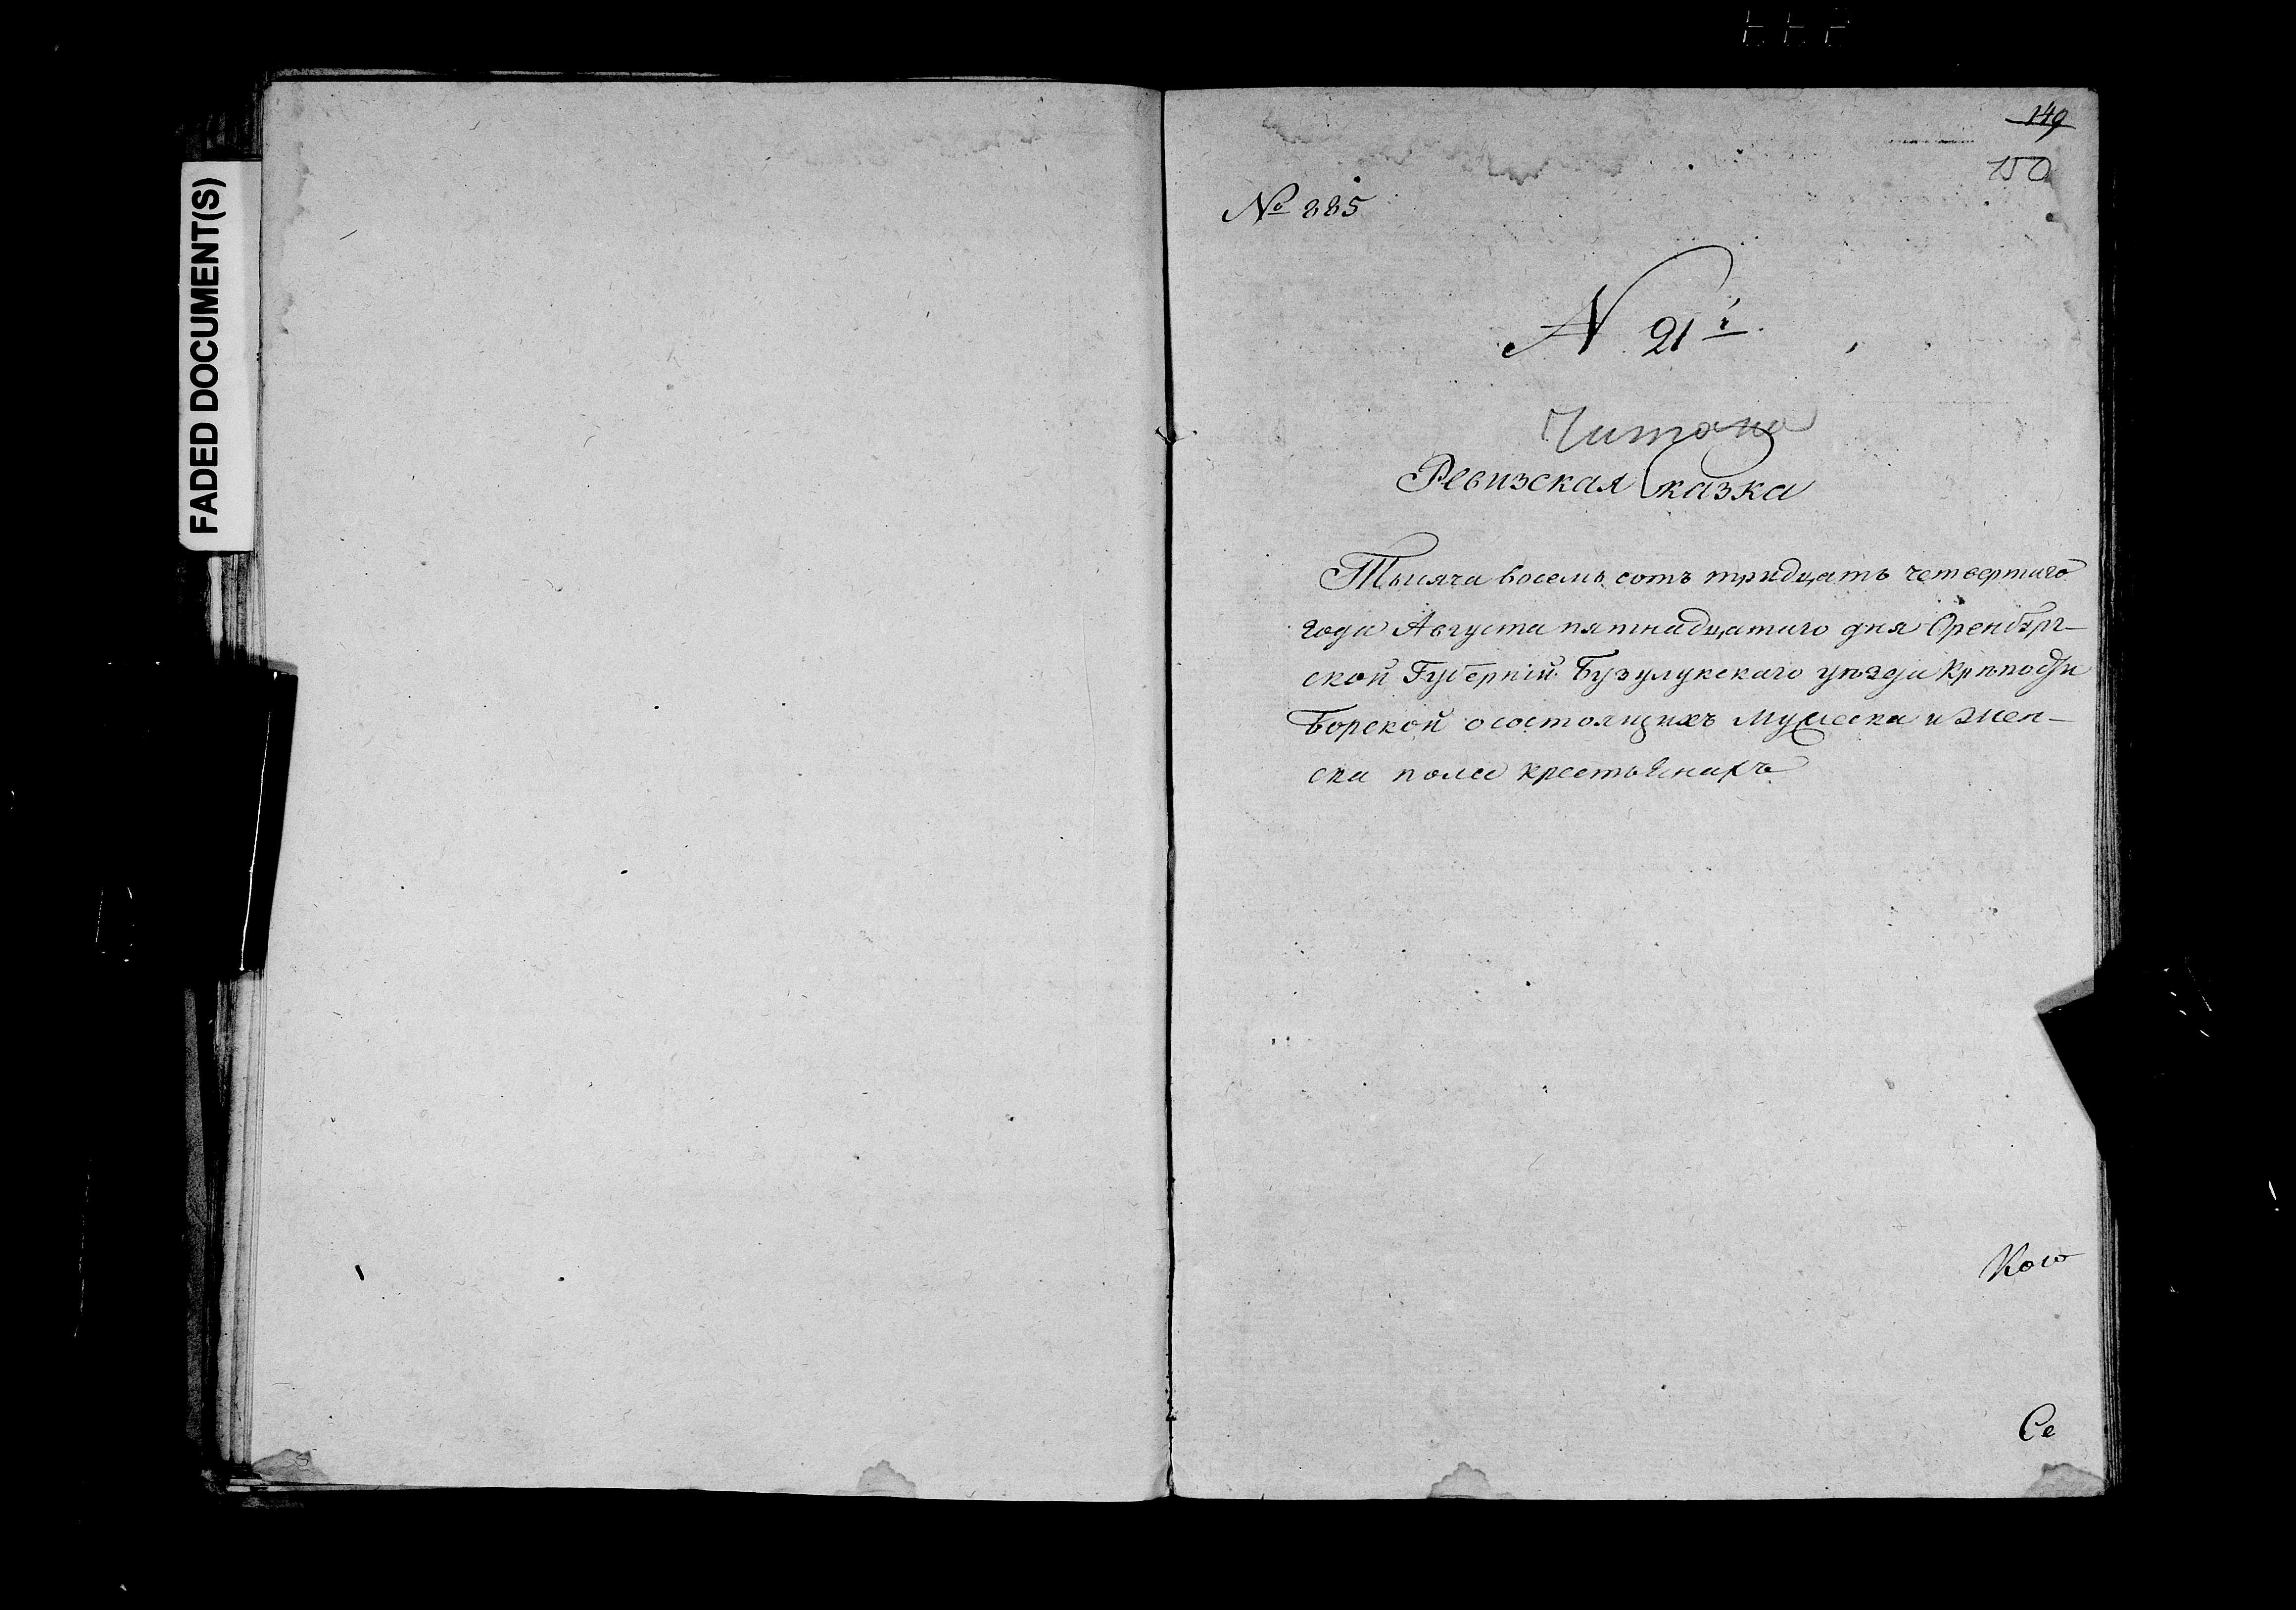 FADED DOCUMENT(S)
149
150
№ 885
N 21й
Читана
Ревизская Сказка
Тысяча восемь сотъ тридцать четвертаго
года Августа пятнадцатаго дня Оренбург-
ской Губернiи Бузулукскаго уѣзда Крѣпости
Борской о состоящихъ мужеска и жен-
ска пола крестьянахъ
Се